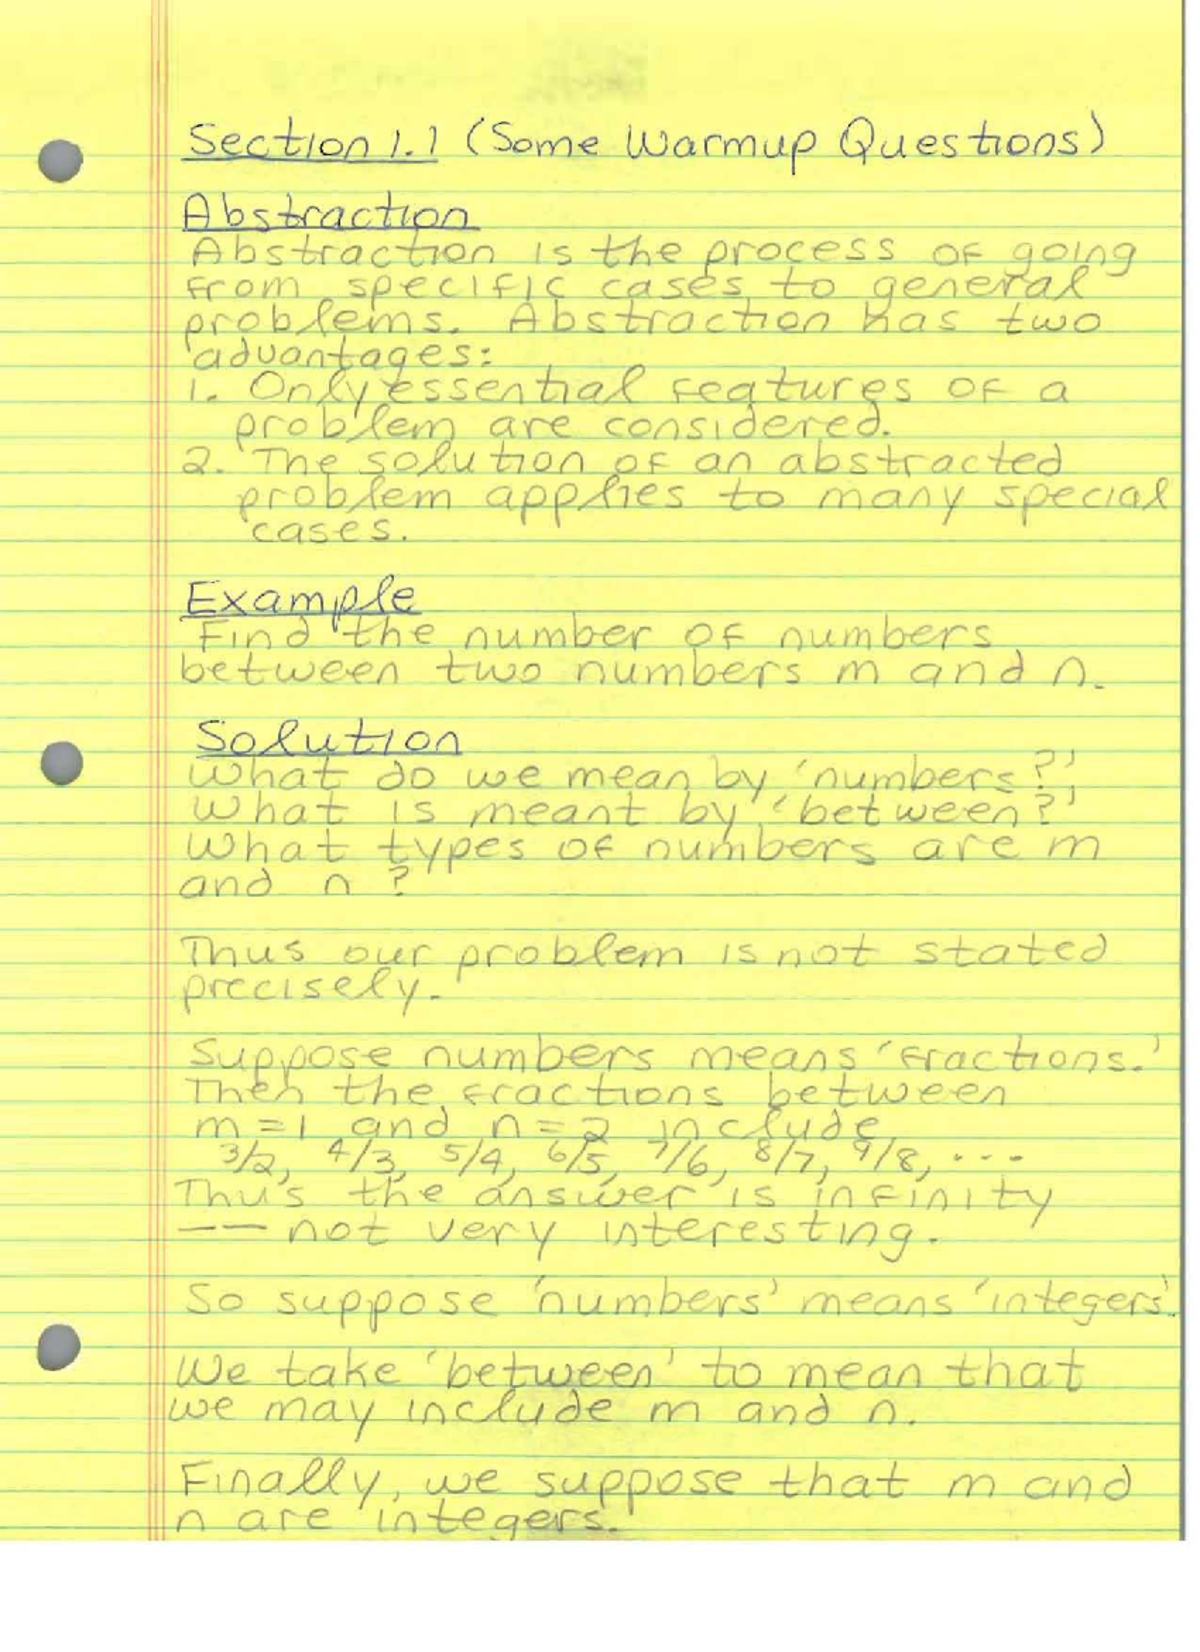 Section 1.1 (Some Warmup Questions)
Abstraction
Abstraction is the process of going
from specific cases to general
problems. Abstraction has two
advantages:
1. Only essential features of a
problem are considered.
2. The solution of an abstracted
problem applies to many special
cases.
Example
Find the number of numbers
between two numbers m and n.
Solution
What do we mean by 'numbers?'
What is meant by 'between?'
What types of numbers are m
and n?
Thus our problem is not stated
precisely.
Suppose numbers means 'fractions.'
Then the fractions between
m=1 and n=2 include
3/2, 4/3, 5/4, 6/5, 7/6, 8/7, 9/8, ...
Thus the answer is infinity
-- not very interesting.
So suppose 'numbers' means 'integers'.
We take 'between' to mean that
we may include m and n.
Finally, we suppose that m and
n are integers.